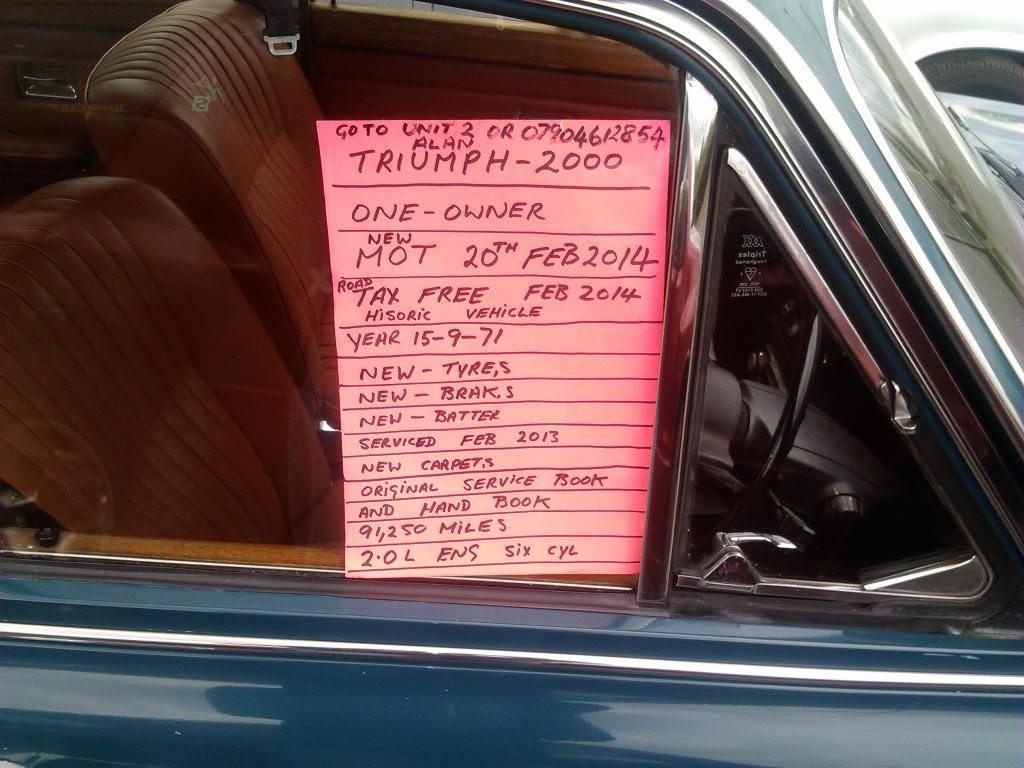 GO TO UNIT 2 OR 07904612854
ALAN
TRIUMPH-2000
ONE-OWNER
NEW
MOT 20TH FEB 2014
ROAD
TAX FREE FEB 2014
HISORIC VEHICLE
YEAR 15-9-71
NEW-TYRE,S
NEW-BRAK,S
NEW-BATTER
SERVICED FEB 2013
NEW CARPET,S
ORIGINAL SERVICE BOOK
AND HAND BOOK
91,250 MILES
2.0L ENG SIX CYL
XXX
Triplex
toughened